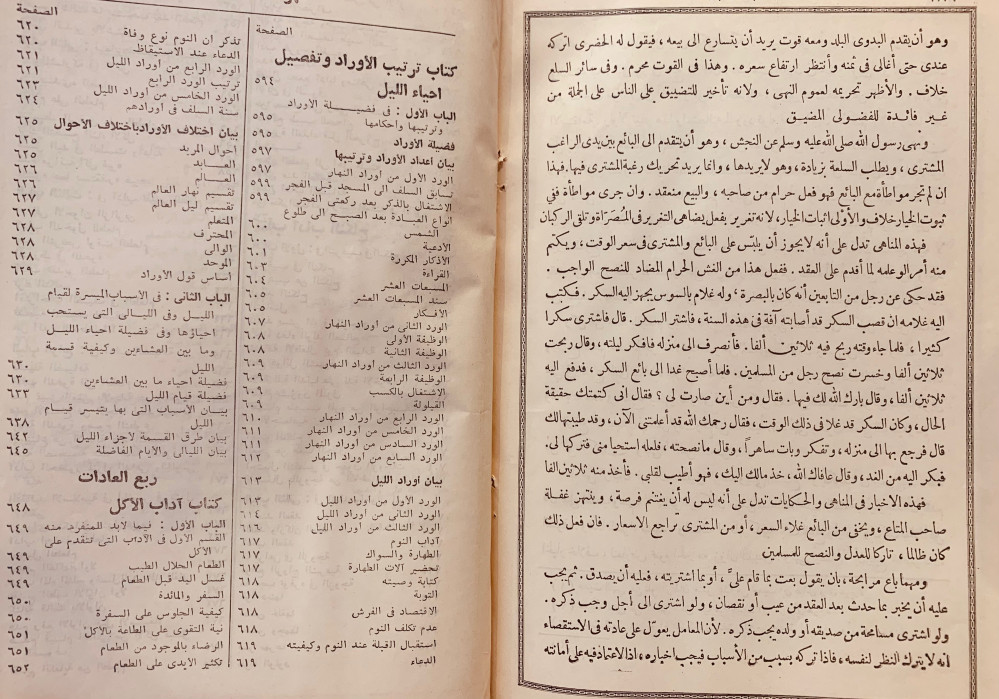 وهو أن يقدم البدوى البلد ومعه قوت يريد أن يتسارع الى بيعه ، فيقول له الحضرى اتركه
عندى حتى أغالى فى ثمنه وأنتظر ارتفاع سعره . وهذا فى القوت محرم . وفى سائر السلع
خلاف . والأظهر تحريمه لعموم النهى ، ولانه تأخير للتضييق على الناس على الجملة من
غير فائدة للفضولى المضيق
ونهى رسول الله صلى الله عليه وسلم عن النجش ، وهو أن يتقدم الى البائع بين يدى الراغب
المشترى ، ويطلب السلعة بزيادة ، وهو لا يريدها ، وانما يريد تحريك رغبة المشترى فيها . فهذا
ان لم تجر مواطأة مع البائع فهو فعل حرام من صاحبه ، والبيع منعقد . وان جرى مواطأة ففى
ثبوت الخيار خلاف والأولى اثبات الخيار ، لانه تغرير بفعل يضاهى التغرير فى المُصَرَّاة وتلقى الركبان
فهذه المناهى تدل على أنه لا يجوز أن يلبّس على البائع والمشترى فى سعر الوقت ، ويكتم
منه أمرا لو علمه لما أقدم على العقد . ففعل هذا من الغش الحرام المضاد للنصح الواجب .
فقد حكى عن رجل من التابعين أنه كان بالبصرة ، وله غلام بالسوس يجهز اليه السكر . فكتب
اليه غلامه ان قصب السكر قد أصابته آفة فى هذه السنة ، فاشتر السكر . قال فاشترى سكرا
كثيرا ، فلما جاء وقته ربح فيه ثلاثين ألفا . فأنصرف الى منزله فافكر ليلته ، وقال ربحت
ثلاثين ألفا وخسرت نصح رجل من المسلمين . فلما أصبح غدا الى بائع السكر ، فدفع اليه
ثلاثين ألفا ، وقال بارك الله لك فيها . فقال ومن أين صارت لى ؟ فقال انى كتمتك حقيقة
الحال ، وكان السكر قد غلا فى ذلك الوقت ، فقال رحمك الله قد أعلمتنى الآن ، وقد طيبتها لك
قال فرجع بها الى منزله ، وتفكر وبات ساهراً ، وقال ما نصحته ، فلعله استحيا منى فتركها لى .
فبكر اليه من الغد ، وقال عافاك الله ، خذ مالك اليك ، فهو أطيب لقلبى . فأخذ منه ثلاثين الفا
فهذه الاخبار فى المناهى والحكايات تدل على أنه ليس له أن يغتنم فرصة ، وينتهز غفلة
صاحب المتاع ، ويخفى من البائع غلاء السعر ، أو من المشترى تراجع الاسعار . فان فعل ذلك
كان ظالما ، تاركا للعدل والنصح للمسلمين
ومهما باع مرابحة ، بان يقول بعت بما قام علىَّ ، أو بما اشتريته ، فعليه أن يصدق . ثم يجب
عليه أن يخبر بما حدث بعد العقد من عيب أو نقصان ، ولو اشترى الى أجل وجب ذكره .
ولو اشترى مسامحة من صديقه أو ولده يجب ذكره . لأن المعامل يعول على عادته فى الاستقصاء
انه لا يترك النظر لنفسه ، فاذا تركه بسبب من الأسباب فيجب اخباره ، اذ الاعتماد فيه على أمانته
الصفحة
كتاب ترتيب الأوراد وتفصيل
احياء الليل ٥٩٤
الباب الأول : فى فضيلة الأوراد
وترتيبها وأحكامها ٥٩٥
فضيلة الأوراد ٥٩٥
بيان أعداد الأوراد وترتيبها ٥٩٧
الورد الأول من أوراد النهار ٥٩٧
تسابق السلف الى المسجد قبل الفجر ٥٩٩
الاشتغال بالذكر بعد ركعتى الفجر ٥٩٩
أنواع العبادة بعد الصبح الى طلوع
الشمس ٦٠٠
الأدعية ٦٠٠
الأذكار المكررة ٦٠١
القراءة ٦٠٣
المسبعات العشر ٦٠٤
سند المسبعات العشر ٦٠٥
الأفكار ٦٠٥
الورد الثانى من أوراد النهار ٦٠٧
الوظيفة الأولى ٦٠٨
الوظيفة الثانية ٦٠٨
الورد الثالث من أوراد النهار ٦٠٩
الوظيفة الرابعة ٦٠٩
الاشتغال بالكسب ٦٠٩
القيلولة ٦٠٩
الورد الرابع من أوراد النهار ٦١٠
الورد الخامس من أوراد النهار ٦١١
الورد السادس من أوراد النهار ٦١١
الورد السابع من أوراد النهار ٦١٢
بيان أوراد الليل ٦١٣
الورد الأول من أوراد الليل ٦١٣
الورد الثانى من أوراد الليل ٦١٤
الورد الثالث من أوراد الليل ٦١٦
آداب النوم ٦١٧
الطهارة والسواك ٦١٧
تحضير آلات الطهارة ٦١٧
كتابة وصيته ٦١٨
التوبة ٦١٨
الاقتصاد فى الفرش ٦١٨
عدم تكلف النوم ٦١٨
استقبال القبلة عند النوم وكيفيته ٦١٩
الدعاء ٦١٩
الصفحة
تذكر أن النوم نوع وفاة ٦٢٠
الدعاء عند الاستيقاظ ٦٢٠
الورد الرابع من أوراد الليل ٦٢١
ترتيب الورد الرابع ٦٢١
الورد الخامس من أوراد الليل ٦٢٣
سنة السلف فى أورادهم ٦٢٤
بيان اختلاف الأوراد باختلاف الأحوال ٦٢٥
أحوال المريد ٦٢٥
العابد ٦٢٥
العالم ٦٢٦
تقسيم نهار العالم ٦٢٦
تقسيم ليل العالم ٦٢٧
المتعلم ٦٢٧
المحترف ٦٢٨
الوالى ٦٢٨
الموحد ٦٢٨
أساس قول الأوراد ٦٢٩
الباب الثانى : فى الأسباب الميسرة لقيام
الليل وفى الليالى التى يستحب
احياؤها وفى فضيلة احياء الليل
وما بين العشاءين وكيفية قسمة
الليل ٦٣٠
فضيلة احياء ما بين العشاءين ٦٣٠
فضيلة قيام الليل ٦٣٣
بيان الأسباب التى بها يتيسر قيام
الليل ٦٣٨
بيان طرق القسمة لأجزاء الليل ٦٤٢
بيان الليالى والأيام الفاضلة ٦٤٥
ربع العادات
كتاب آداب الأكل ٦٤٨
الباب الأول : فيما لابد للمنفرد منه ٦٤٩
القسم الأول فى الآداب التى تتقدم على
الأكل ٦٤٩
الطعام الحلال الطيب ٦٤٩
غسل اليد قبل الطعام ٦٤٩
السفر والمائدة ٦٥٠
كيفية الجلوس على السفرة ٦٥٠
نية التقوى على الطاعة بالأكل ٦٥١
الرضاء بالموجود من الطعام ٦٥١
تكثير الأيدى على الطعام ٦٥٢